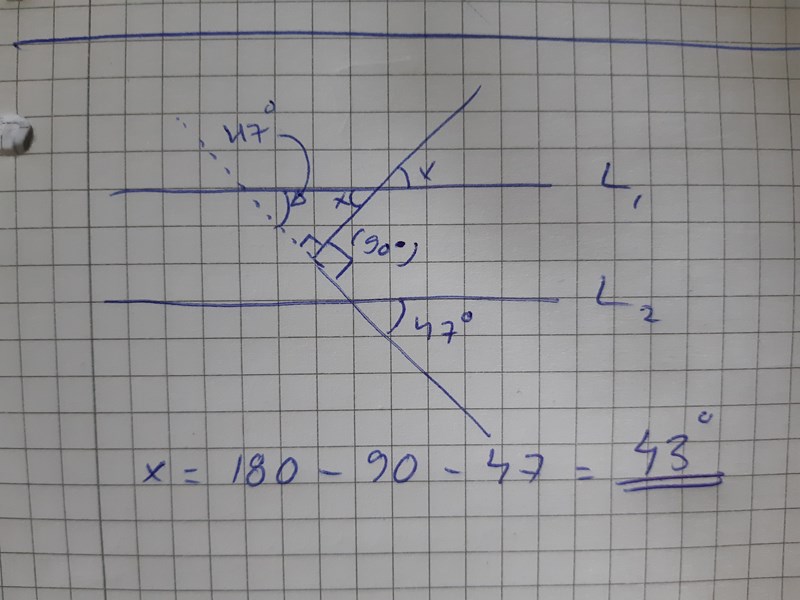 47°
x
L₁
x
(90°)
L₂
47°
x = 180 - 90 - 47 = 43°